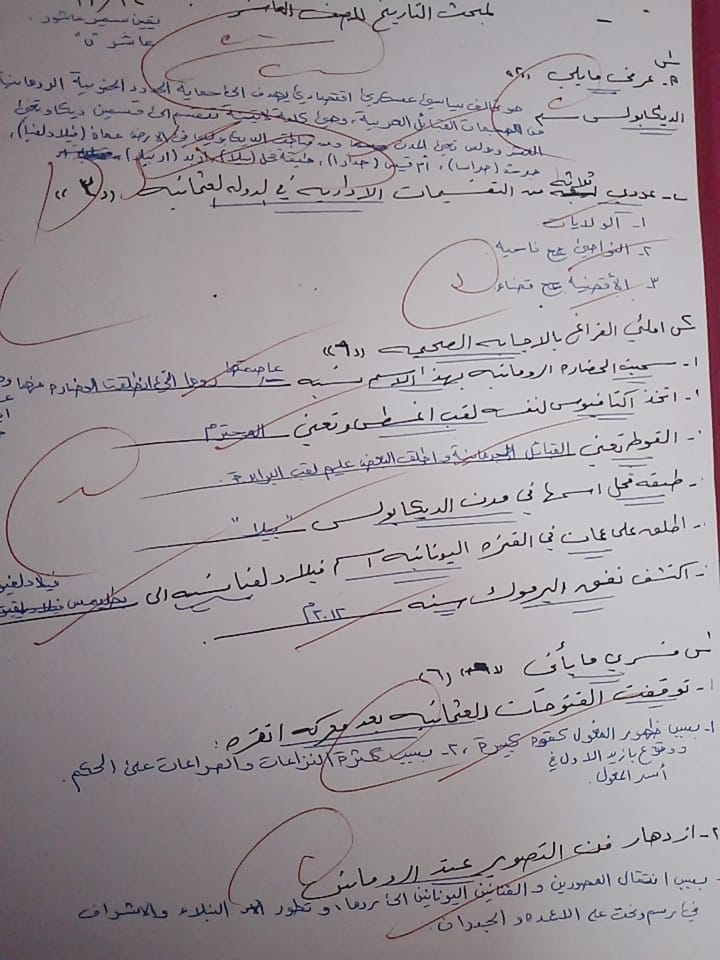 لمبحث التاريخ للصف العاشر
يقين سمير عاشور
عاشر "ن"
س١
أ- عرفي مايلي "٢"
هو تحالف سياسي عسكري اقتصادي يهدف الى حماية الحدود الجنوبية الرومانية
الديكابولس من هجمات القبائل العربية، وهي كلمة لاتينية تنقسم الى قسمين ديكا وتعني
العشر وبولس تعني المدن في الأردن عمان (فيلادلفيا)،
جرش (جراسا)، أم قيس (جدارا)، طبقة فحل (بيلا)، اربد (اربيلا)
ب- عددي ثلاثة من التقسيمات الادارية في الدوله العثمانية "٣"
١- الولايات
٢- النواحي جمع ناحية
٣- الأقضية جمع قضاء
س٢ املئي الفراغ بالاجابه الصحيحه "٩"
١- سميت الحضاره الرومانيه بهذا الاسم نسبه عاصمتها روما التي انطلقت الحضاره منها
٢- اتخذ اكتافيوس لنفسه لقب اغسطس وتعني المحترم
- القوط تعني القبائل الجرمانية و اطلق البعض عليهم لقب البرابرة.
- طبقه فحل اسمها في مدن الديكابولس "بيلا"
- اطلق على عمان في الفتره اليونانيه اسم فيلادلفيا نسبه الى بطليموس فيلادلفيوس
- اكتشف نفق اليرموك سنه ٢٠١٢م
س فسري ما يأتي (٦)
١- توقفت الفتوحات العثمانيه بعد معركه انقره:
١- بسبب ظهور المغول كقوة كبيرة، ٢- بسبب كثرة النزاعات والصراعات على الحكم.
ووقوع بازيد الاول في
أسر المغول.
٢- ازدهار فن التصوير عند الرومان
بسبب انتقال المصورين و الفنانين اليونانين الى روما، و تطور النبلاء والاشراف
في رسم ونحت على الاعمدة و الجدران.